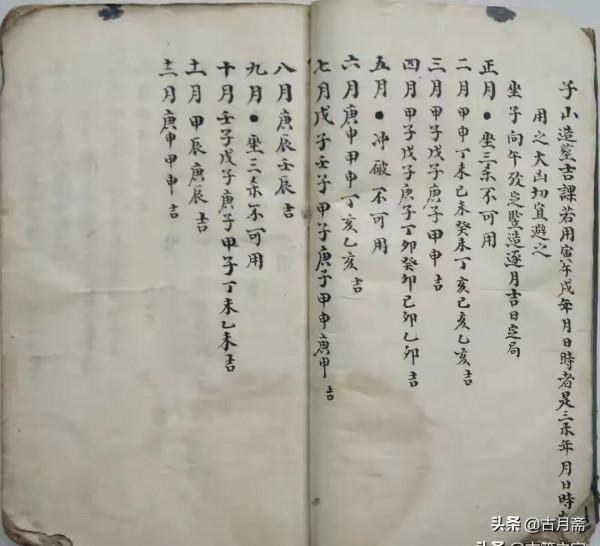 子山造塟吉課若用寅午戌年月日時者是三杀年月日時
用之大凶切宜避之
坐子向午發定豎造逐月吉日定局
正月●坐三杀不可用
二月甲申丁未己未癸未丁亥己亥乙亥吉
三月甲子戊子庚子甲申吉
四月甲子戊子庚子丁卯癸卯己卯乙卯吉
五月●冲破不可用
六月庚申甲申丁亥乙亥吉
七月戊子壬子甲子庚子甲申庚申吉
八月庚辰壬辰吉
九月●坐三杀不可用
十月壬子戊子庚子甲子丁未乙未吉
十一月甲辰庚辰吉
十二月庚申甲申吉
头条 @古月斋
头条